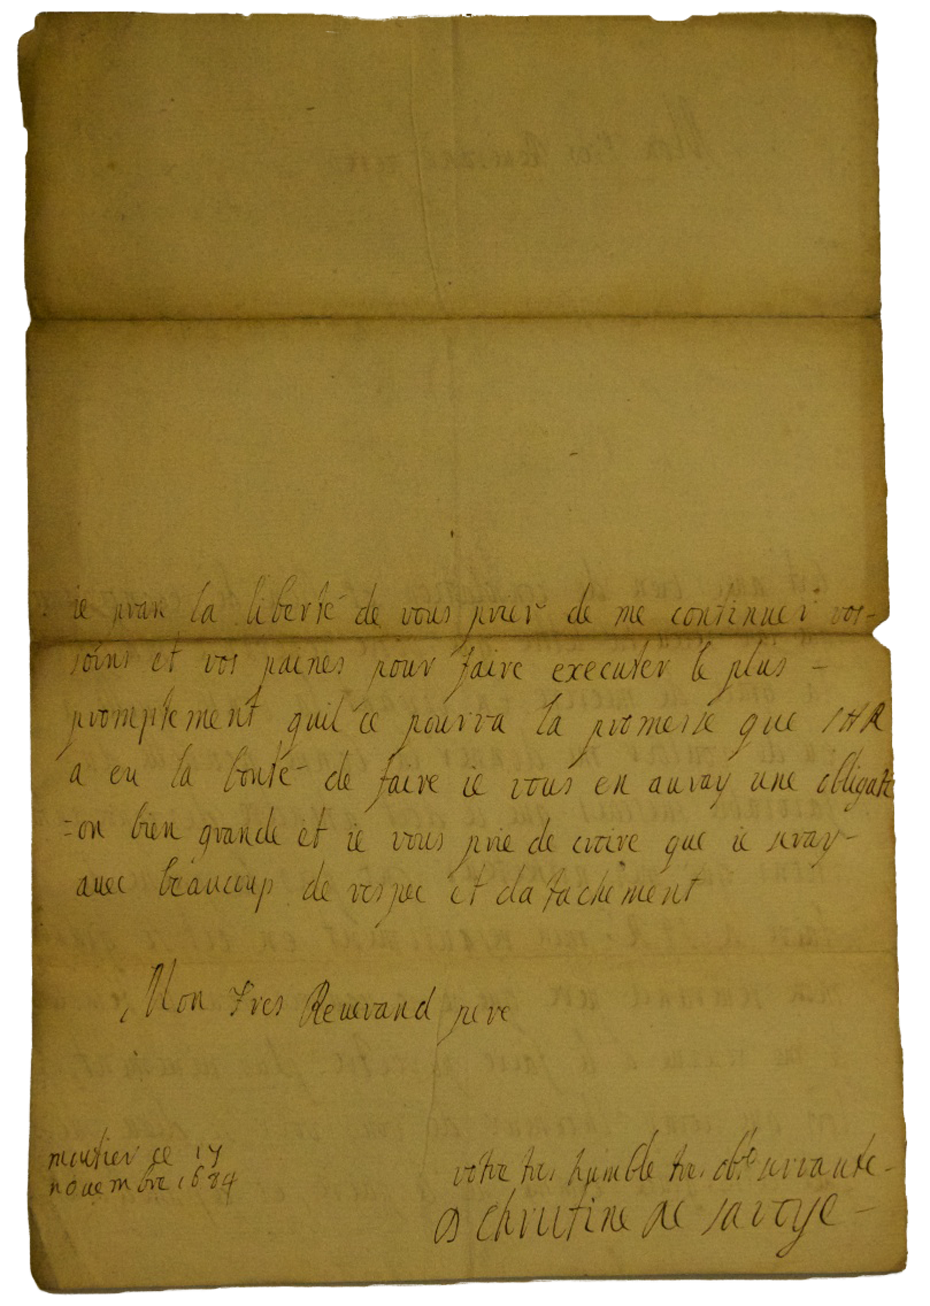 ie pran la liberté de vous prier de me continuer vos-
soins et vos paines pour faire executer le plus -
promptement quil ce pourra la promesse que SAR
a eu la bonté de faire ie vous en auray une obligati
=on bien grande et ie vous prie de croire que ie seray-
auec beaucoup de respec et datachement
Mon tres Reuerand pere
moutier ce 17
nouembre 1684
votre tres humble tres obte seruante-
Christine de sauoye-